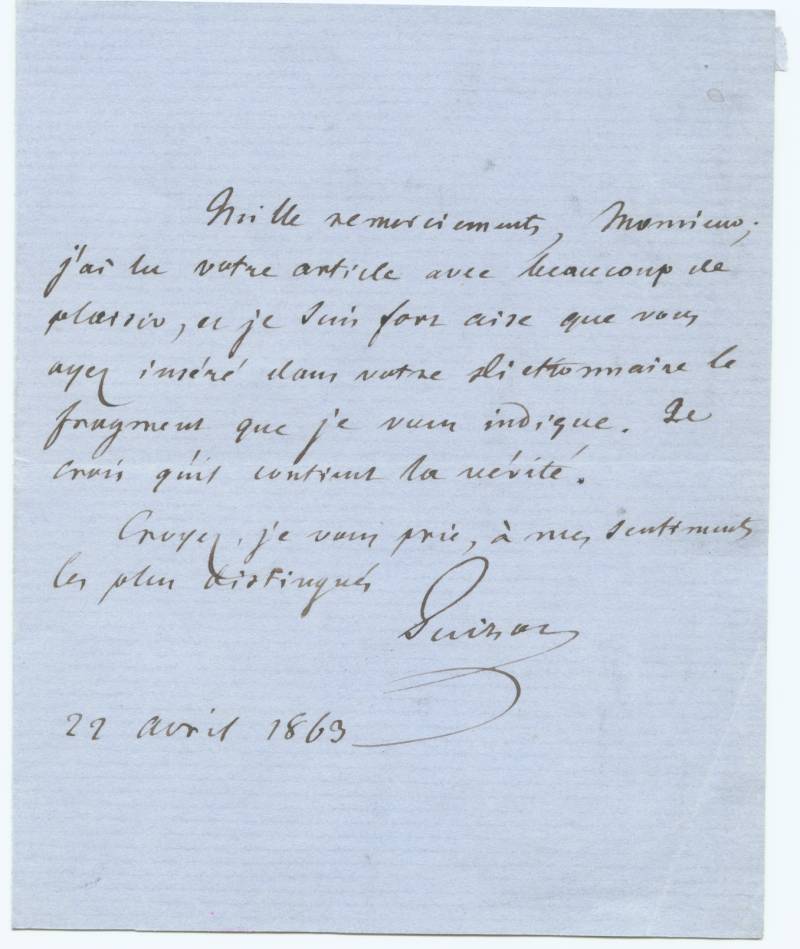 Mille remerciements, Monsieur;
j'ai lu votre article avec beaucoup de
plaisir, et je suis fort aise que vous
ayez inséré dans votre Dictionnaire le
fragment que je vous indique. Je
crois qu'il contient la vérité.
Croyez, je vous prie, à mes sentiments
les plus distingués
Guizot
22 avril 1863